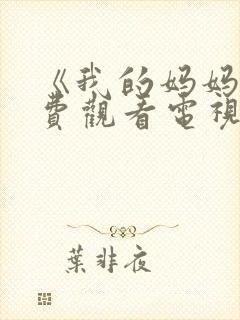 《我的妈妈
费觀看電視
葉非夜